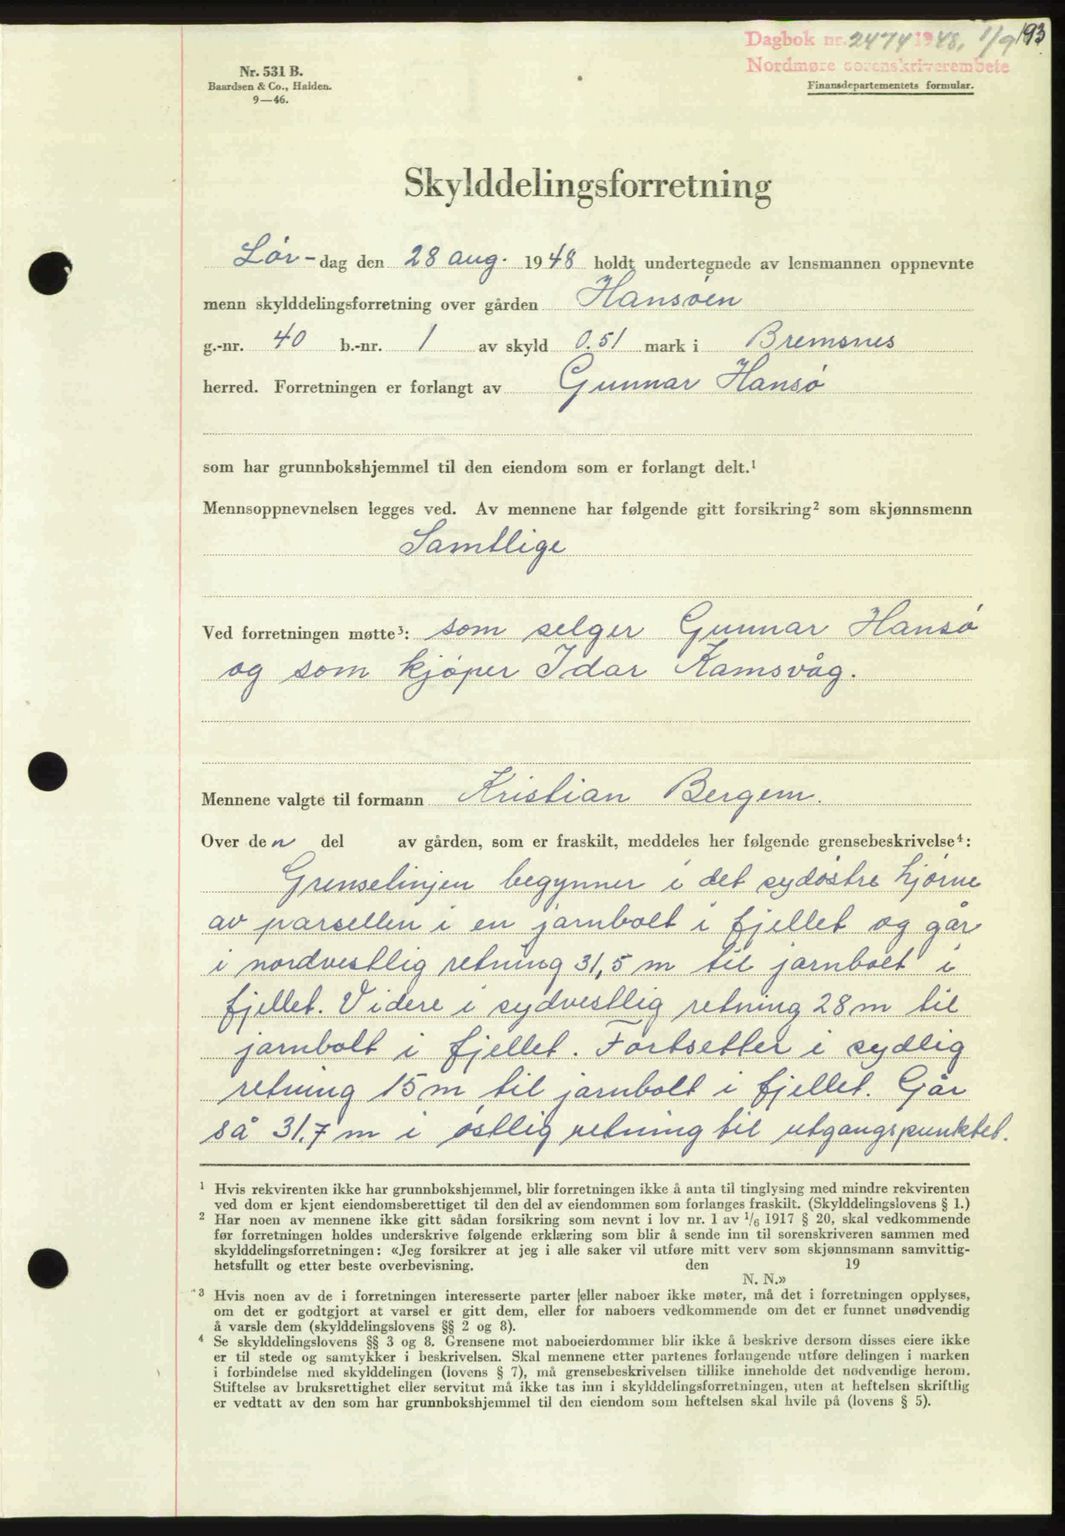 193
Dagbok nr. 2474 1948, 1/9
Nordmøre sorenskriverembete
Nr. 531 B.
Baardsen & Co., Halden.
9—46.
Finansdepartementets formular.
Skylddelingsforretning
Lør-dag den 28 aug. 1948 holdt undertegnede av lensmannen oppnevnte
menn skylddelingsforretning over gården Hansøen
g.-nr. 40 b.-nr. 1 av skyld 0.51 mark i Bremsnes
herred. Forretningen er forlangt av Gunnar Hansø
som har grunnbokshjemmel til den eiendom som er forlangt delt.¹
Mennsoppnevnelsen legges ved. Av mennene har følgende gitt forsikring² som skjønnsmenn
Samtlige
Ved forretningen møtte³: som selger Gunnar Hansø
og som kjøper Idar Ramsvåg.
Mennene valgte til formann Kristian Bergem.
Over den del av gården, som er fraskilt, meddeles her følgende grensebeskrivelse⁴:
Grenselinjen begynner i det sydøstre hjørne
av parsellen i en jarnbolt i fjellet og går
i nordvestlig retning 31,5 m til jarnbolt i
fjellet. Videre i sydvestlig retning 28 m til
jarnbolt i fjellet. Fortsetter i sydlig
retning 15 m til jarnbolt i fjellet. Går
så 31.7 m i østlig retning til utgangspunktet.
¹ Hvis rekvirenten ikke har grunnbokshjemmel, blir forretningen ikke å anta til tinglysing med mindre rekvirenten
ved dom er kjent eiendomsberettiget til den del av eiendommen som forlanges fraskilt. (Skylddelingslovens § 1.)
² Har noen av mennene ikke gitt sådan forsikring som nevnt i lov nr. 1 av 1/6 1917 § 20, skal vedkommende
før forretningen holdes underskrive følgende erklæring som blir å sende inn til sorenskriveren sammen med
skylddelingsforretningen: «Jeg forsikrer at jeg i alle saker vil utføre mitt verv som skjønnsmann samvittig-
hetsfullt og etter beste overbevisning. den 19
N. N.»
³ Hvis noen av de i forretningen interesserte parter eller naboer ikke møter, må det i forretningen opplyses,
om det er godtgjort at varsel er gitt dem, eller for naboers vedkommende om det er funnet unødvendig
å varsle dem (skylddelingslovens §§ 2 og 8).
⁴ Se skylddelingslovens §§ 3 og 8. Grensene mot naboeierdommer blir ikke å beskrive dersom disses eiere ikke
er til stede og samtykker i beskrivelsen. Skal mennene etter partenes forlangende utføre delingen i marken
i forbindelse med skylddelingen (lovens § 7), må grensebeskrivelsen tillike inneholde det nødvendige herom.
Stiftelse av bruksrettighet eller servitut må ikke tas inn i skylddelingsforretningen, uten at heftelsen skriftlig
er vedtatt av den som har grunnbokshjemmel til den eiendom som heftelsen skal hvile på (lovens § 5).